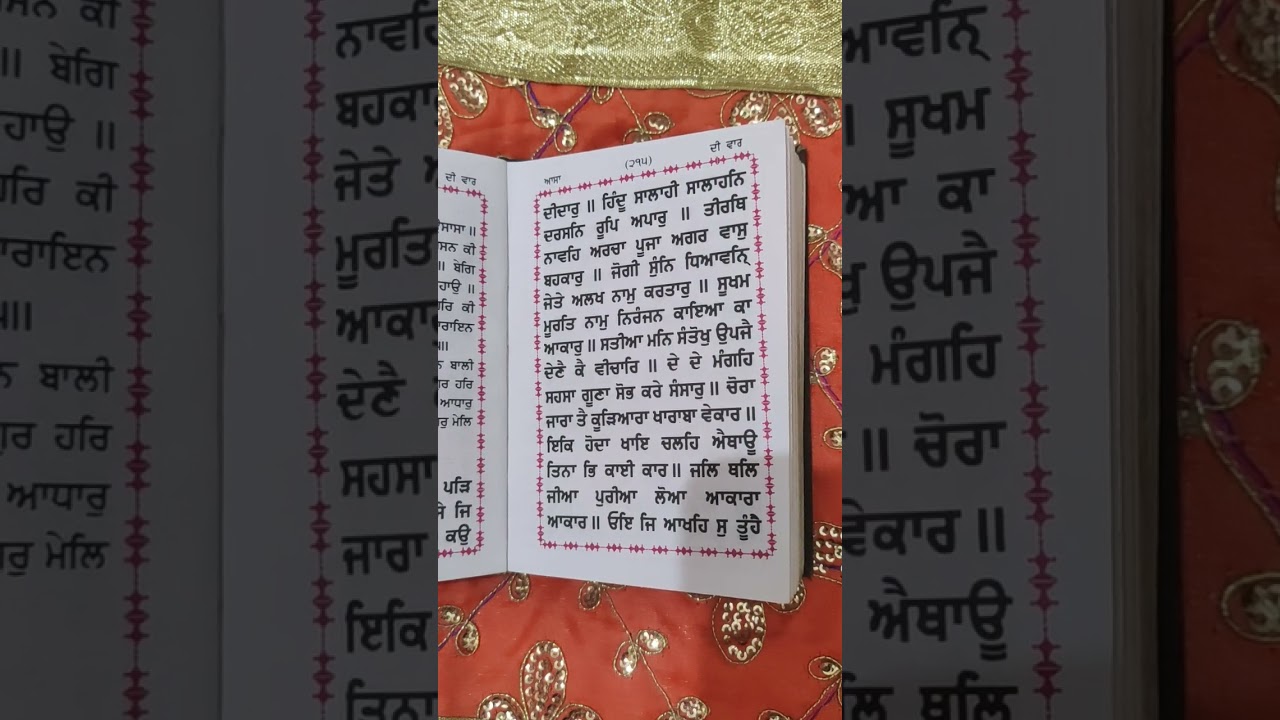 ਦੀ ਵਾਰ
ਸਾਸਾ ॥
ਸਨ ਕੀ
॥ ਬੇਗਿ
ਹਾਉ ॥
ਹਰਿ ਕੀ
ਾਰਾਇਨ
ਨ ਬਾਲੀ
ਗੁਰ ਹਰਿ
ਆਧਾਰੁ
ਰੁ ਮੇਲਿ
ਪੜਿ
ਸੇ ਜਿ
ਕਉ
ਆਸਾ (੨੧੫) ਦੀ ਵਾਰ
ਦੀਦਾਰੁ ॥ ਹਿੰਦੂ ਸਾਲਾਹੀ ਸਾਲਾਹਨਿ
ਦਰਸਨਿ ਰੂਪਿ ਅਪਾਰੁ ॥ ਤੀਰਥਿ
ਨਾਵਹਿ ਅਰਚਾ ਪੂਜਾ ਅਗਰ ਵਾਸੁ
ਬਹਕਾਰੁ ॥ ਜੋਗੀ ਸੁੰਨਿ ਧਿਆਵਨ੍ਹਿ
ਜੇਤੇ ਅਲਖ ਨਾਮੁ ਕਰਤਾਰੁ ॥ ਸੂਖਮ
ਮੂਰਤਿ ਨਾਮੁ ਨਿਰੰਜਨ ਕਾਇਆ ਕਾ
ਆਕਾਰੁ ॥ ਸਤੀਆ ਮਨਿ ਸੰਤੋਖੁ ਉਪਜੈ
ਦੇਣੈ ਕੇ ਵੀਚਾਰਿ ॥ ਦੇ ਦੇ ਮੰਗਹਿ
ਸਹਸਾ ਗੂਣਾ ਸੋਭ ਕਰੇ ਸੰਸਾਰੁ ॥ ਚੋਰਾ
ਜਾਰਾ ਤੈ ਕੂੜਿਆਰਾ ਖਾਰਾਬਾ ਵੇਕਾਰ ॥
ਇਕਿ ਹੋਦਾ ਖਾਇ ਚਲਹਿ ਐਥਾਊ
ਤਿਨਾ ਭਿ ਕਾਈ ਕਾਰ ॥ ਜਲਿ ਥਲਿ
ਜੀਆ ਪੁਰੀਆ ਲੋਆ ਆਕਾਰਾ
ਆਕਾਰ ॥ ਓਇ ਜਿ ਆਖਹਿ ਸੁ ਤੂੰਹੈ